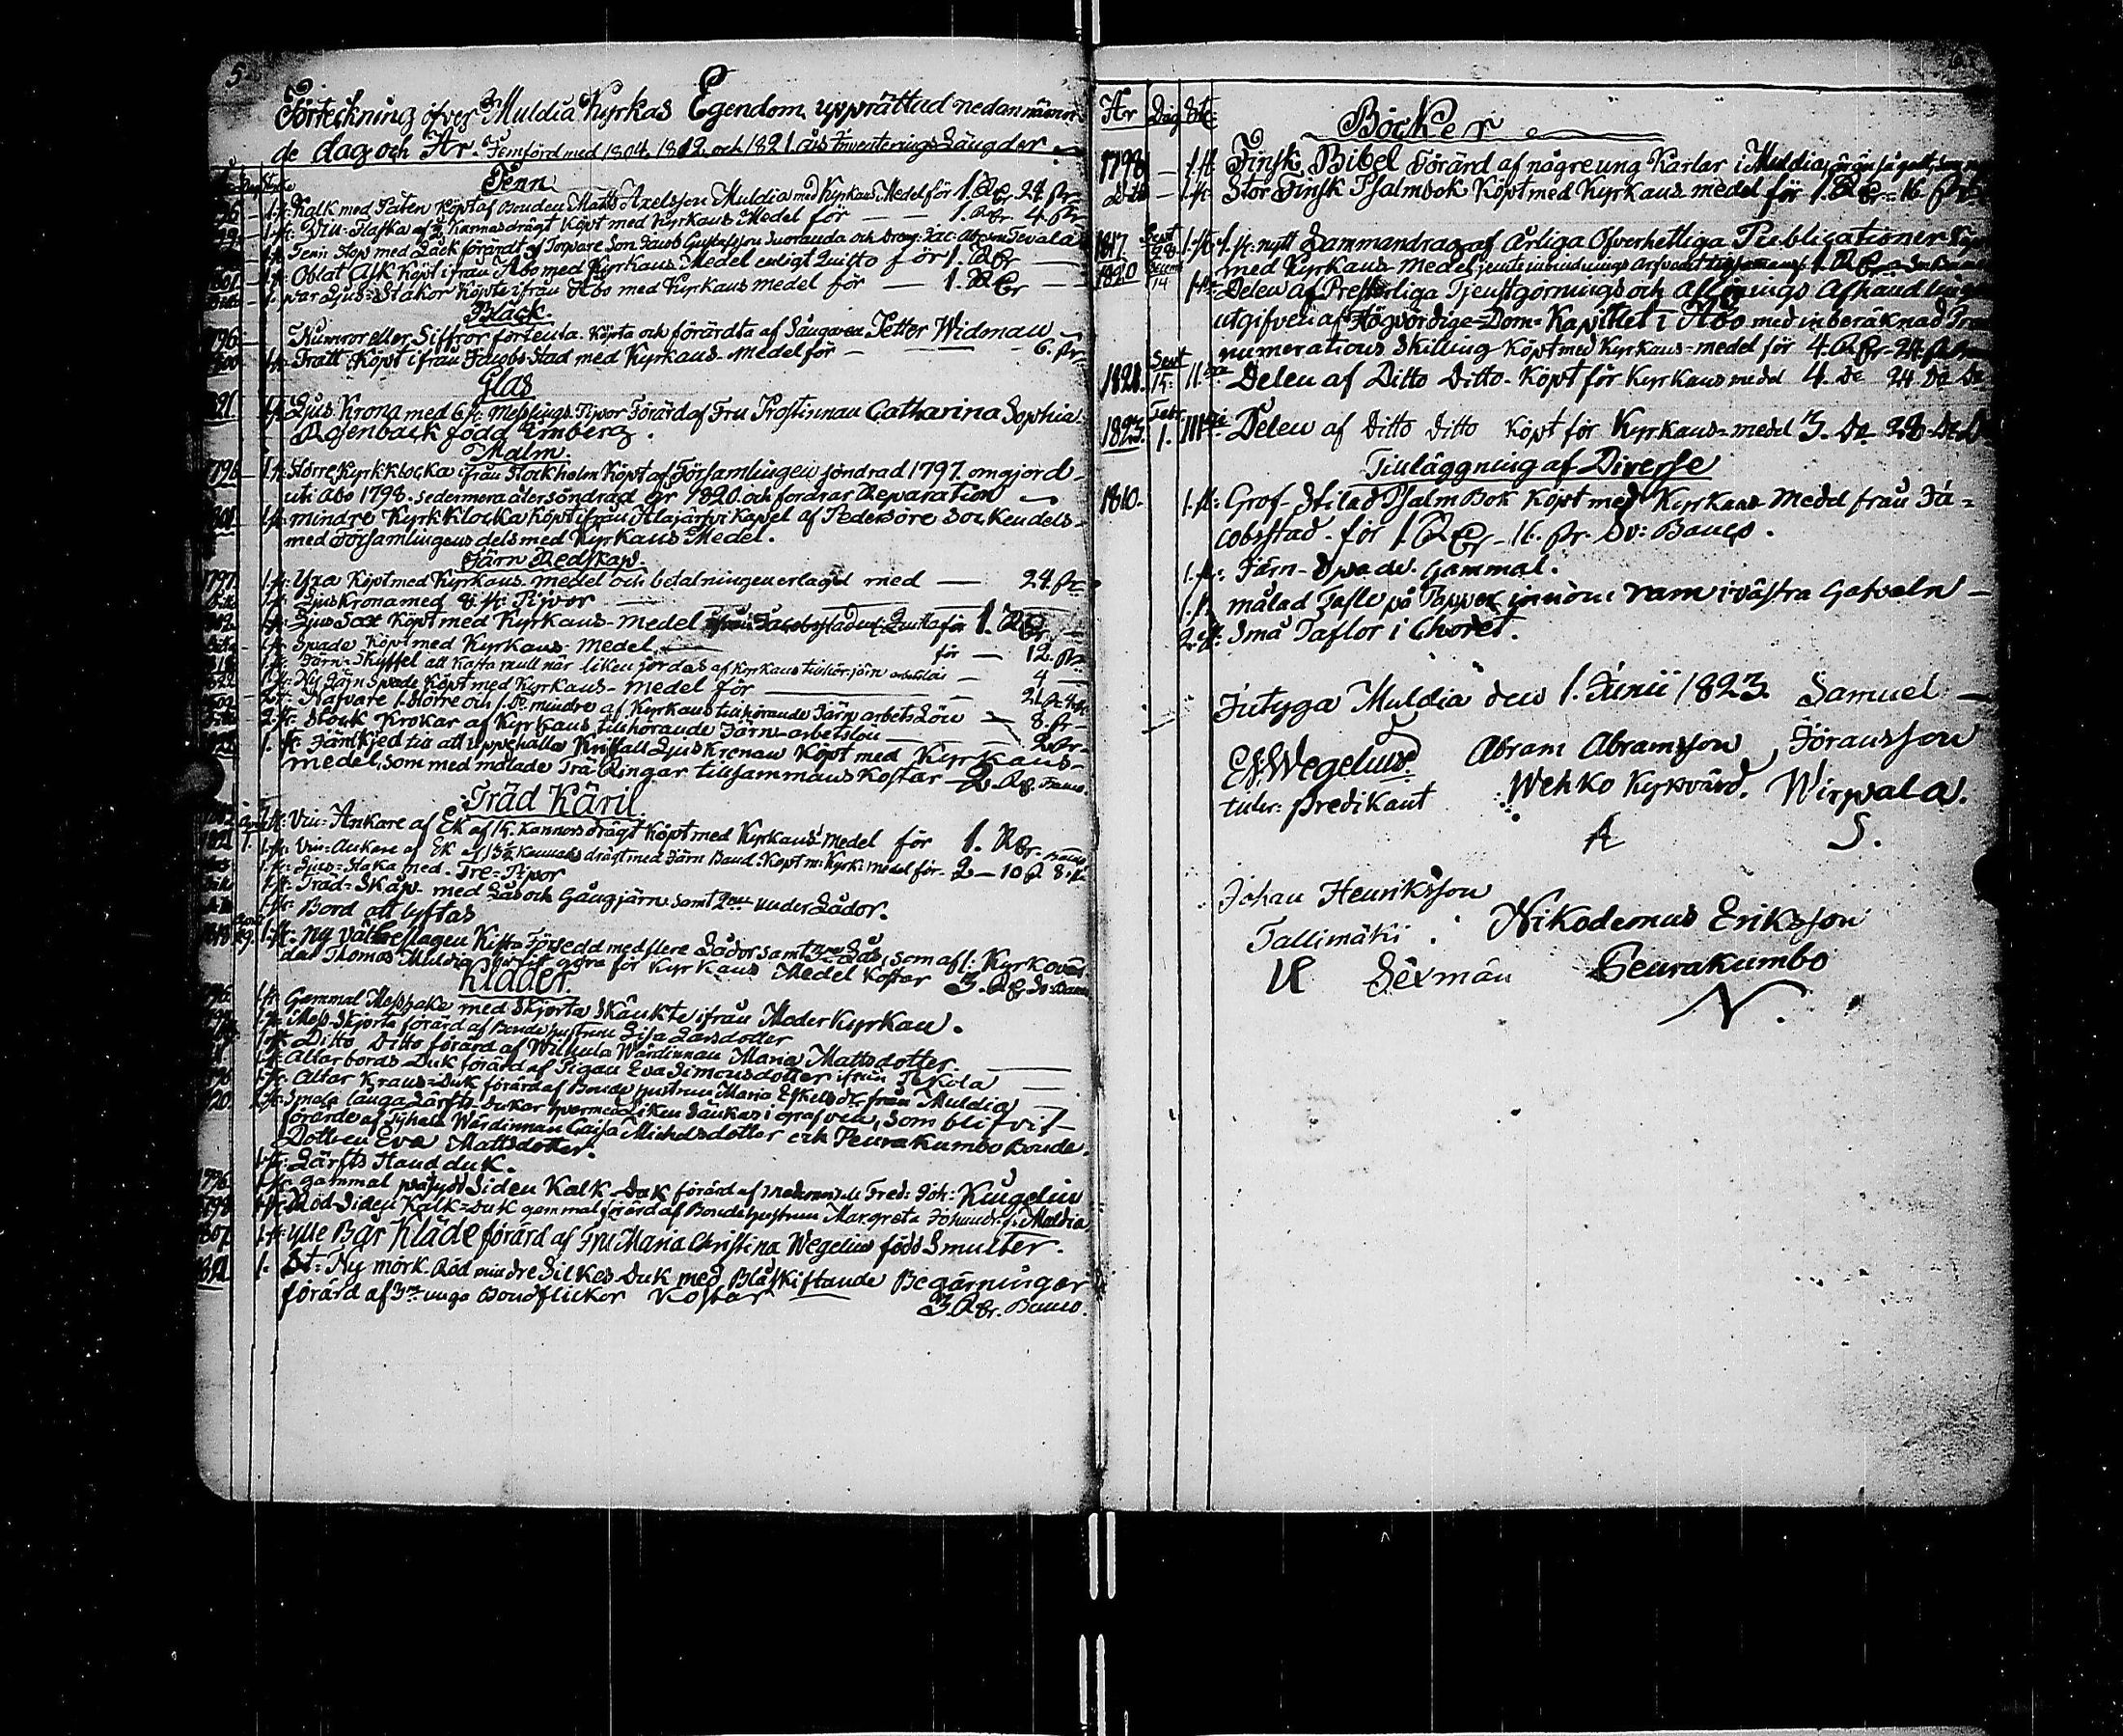 5
Förteckning öfver Muldia Kyrkas Egendom, upprättad nedannämn-
de dag och År. Jemförd med 1804, 1812, och 1821 års Inventerings Längder
Tenn
1. st: Kalk med Paten Köpt af Bonden Matts Axelsson Muldia med Kyrkans Medel för 1. R 24. sk
1. st: Vin-Flaska af Kannas drägt Köpt med Kyrkans Medel för — — 1. R 4. sk
Tenn Stop med Låck förärdt af Torpare Son Jacob Gustafsson Suoranda och Dreng: Jac: Abram Tevala
1801. 1. st: Oblat Ask Köpt ifrån Åbo med Kyrkans Medel enligt Quitto för 1. R —
Ditto 1. par Ljus-Stakor Köpte ifrån Åbo med Kyrkans medel för — 1. R —
Bläck.
1796 Nummror eller Siffror förtenta. Köpta och förärdta af Sångaren Petter Widonau
1800 1. st: Tratt Köpt ifrån Jacobs Stad med Kyrkans Medel för — 6. sk
Glas
1. st: Ljus Krona med 6 st: Messings Pipor Förärd af Fru Prostinnan Catharina Sophia
Rosenback född Emberg.
Malm.
1. st: Större Kyrk klocka ifrån Stockholm Köpt af Församlingen söndrad 1797. omgjord
uti Åbo 1798. sedermera åter söndrad år 1820. och fordrar Reparation
1. st: mindre Kyrk Klocka Köpt ifrån Alajärfvi Kapel af Pedersöre Socken dels
med Församlingens dels med Kyrkans Medel.
Järn Redskap.
1797 1. st: Yxa Köpt med Kyrkans medel och betalningen erlagd med — 24. sk
Ditto 1. st: Ljus Krona med 8. st: Pijpor
1. st: Ljus Sax Köpt med Kyrkans-medel för 1. R
1. st: Spade Köpt med Kyrkans Medel för — 12. sk
1. st: Järn-Skyffel att kasta mull när liken jordas af Kyrkans tillhör: järn — 4 —
1. st: Ny Järn Spade Köpt med Kyrkans-medel för
2. st: Nafvare 1. Större och 1. De mindre af Kyrkans tillhörande Järn arbets Lön
2. st: Stock Krokar af Kyrkans tillhörande Järn-arbetslön — 8. sk
1. st: Järnkjed till att uppehålla Kristall Ljus Kronan Köpt med Kyrkans-
medel, som med målade Trä Ringar tillsammans Kostar — 2. R. Banco
Träd Käril.
1. st: Vin-Ankare af Ek af 15. Kannors drägt Köpt med Kyrkans Medel för 1. R.
1821 1. st: Vin-Ankare af Ek af 15½ Kannors drägt med Järn Band. Köpt m: Kyrk: medel för 2 — 10 8
1. st: Ljus-Staka med Tre-Pipor
1. st: Träd-Skåp med Lås och Gångjärn samt 2ne under Lådor.
1. st: Bord att lyftas
1. st: ny välbeslagen Kista Försedd med flere Lådor samt Lås, som afl: Kyrkovär
den Thomas Muldia låtit göra för Kyrkans Medel Kostar 3. R
Kläder.
1. st: Gammal Messhake med Skjorta Skänkte ifrån Moderkyrkan.
1. st: Mess-Skjorta förärd af Bondehustrun Lisa Larsdotter
1. st: Ditto Ditto förärd af Wilhula Wärdinnan Maria Mattsdotter.
1. st: Altarbords Duk förärd af Pigan Eva Simonsdotter ifrån Pekola
1. st: Altar Krans-Duk förärd af Bonde hustrun Maria Eskelsdr från Muldia
Smala långa Lärfts Dukar hvarmed Liken sänkas i grafven, som blifvit
förärde af Wärdinnan Caisa Michelsdotter och Peurakumbo Bonde
Dottren Eva Mattsdotter.
1. st: Lärfts Handduk.
1796 1. st: gammal påsydd Siden Kalk-Duk förärd af Fred: Joh: Kingelin
1798 1. st: Röd Siden Kalk-Duk gammal förärd af Bondehustrun Margreta Johansdr. Muldia
1807 1. st: ylle Bår Kläde förärd af Fru Maria Christina Wegelius född Smulter.
1821 1. St: Ny mörk Röd mindre Silkes Duk med Blåskiftande Begärningar
förärd af 3ne unga Bondflickor Kostar 3. R. Banco.
År Dag Stk
Böcker
1798 — 1. st Finsk Bibel Förärd af någre ung Karlar i Muldia
ditto — 1. st: Stor Finsk Psalmbok Köpt med Kyrkans medel för 1. R — 16 sk
1817. Sept 28 1. st: nytt Sammandrag af Årliga Öfverhetliga Publicationer
med Kyrkans-Medel jemte inbindnings
1820 14 1. Delen af Presterliga Tjenstgörnings och Aflönings Afhandlingar
utgifven af Högvördige-Dom-Kapitlet i Åbo med inberäknad
numerations Skilling Köpt med Kyrkans-medel för 4. R — 24
1821. Sept 15. II. Delen af Ditto Ditto. Köpt för Kyrkans medel 4. De 24 De De
1823. Febr 1. III Delen af Ditto Ditto Köpt för Kyrkans-medel 3. De 28 De
Tilläggning af Diverse
1810. 1. st: Grof-Stilad Psalm Bok Köpt med Kyrkans Medel från Ja-
cobsstad för 1. R — 16. sk Sv: Banco.
1. st: Järn-Spade. Gammal.
1. st målad Tafle på Papper inom ram i västra Gafveln —
2. st: Små Taflor i Choret.
Intyga Muldia den 1. Junii 1823. Samuel —
Es. Wegelius Abram Abramsson Jöransson
predikant Wehko Kyrkvärd. Wirpala.
A S.
Johan Henriksson
Tallimäki Nikodemus Eriksson
Sexman Peurakumbo
N.